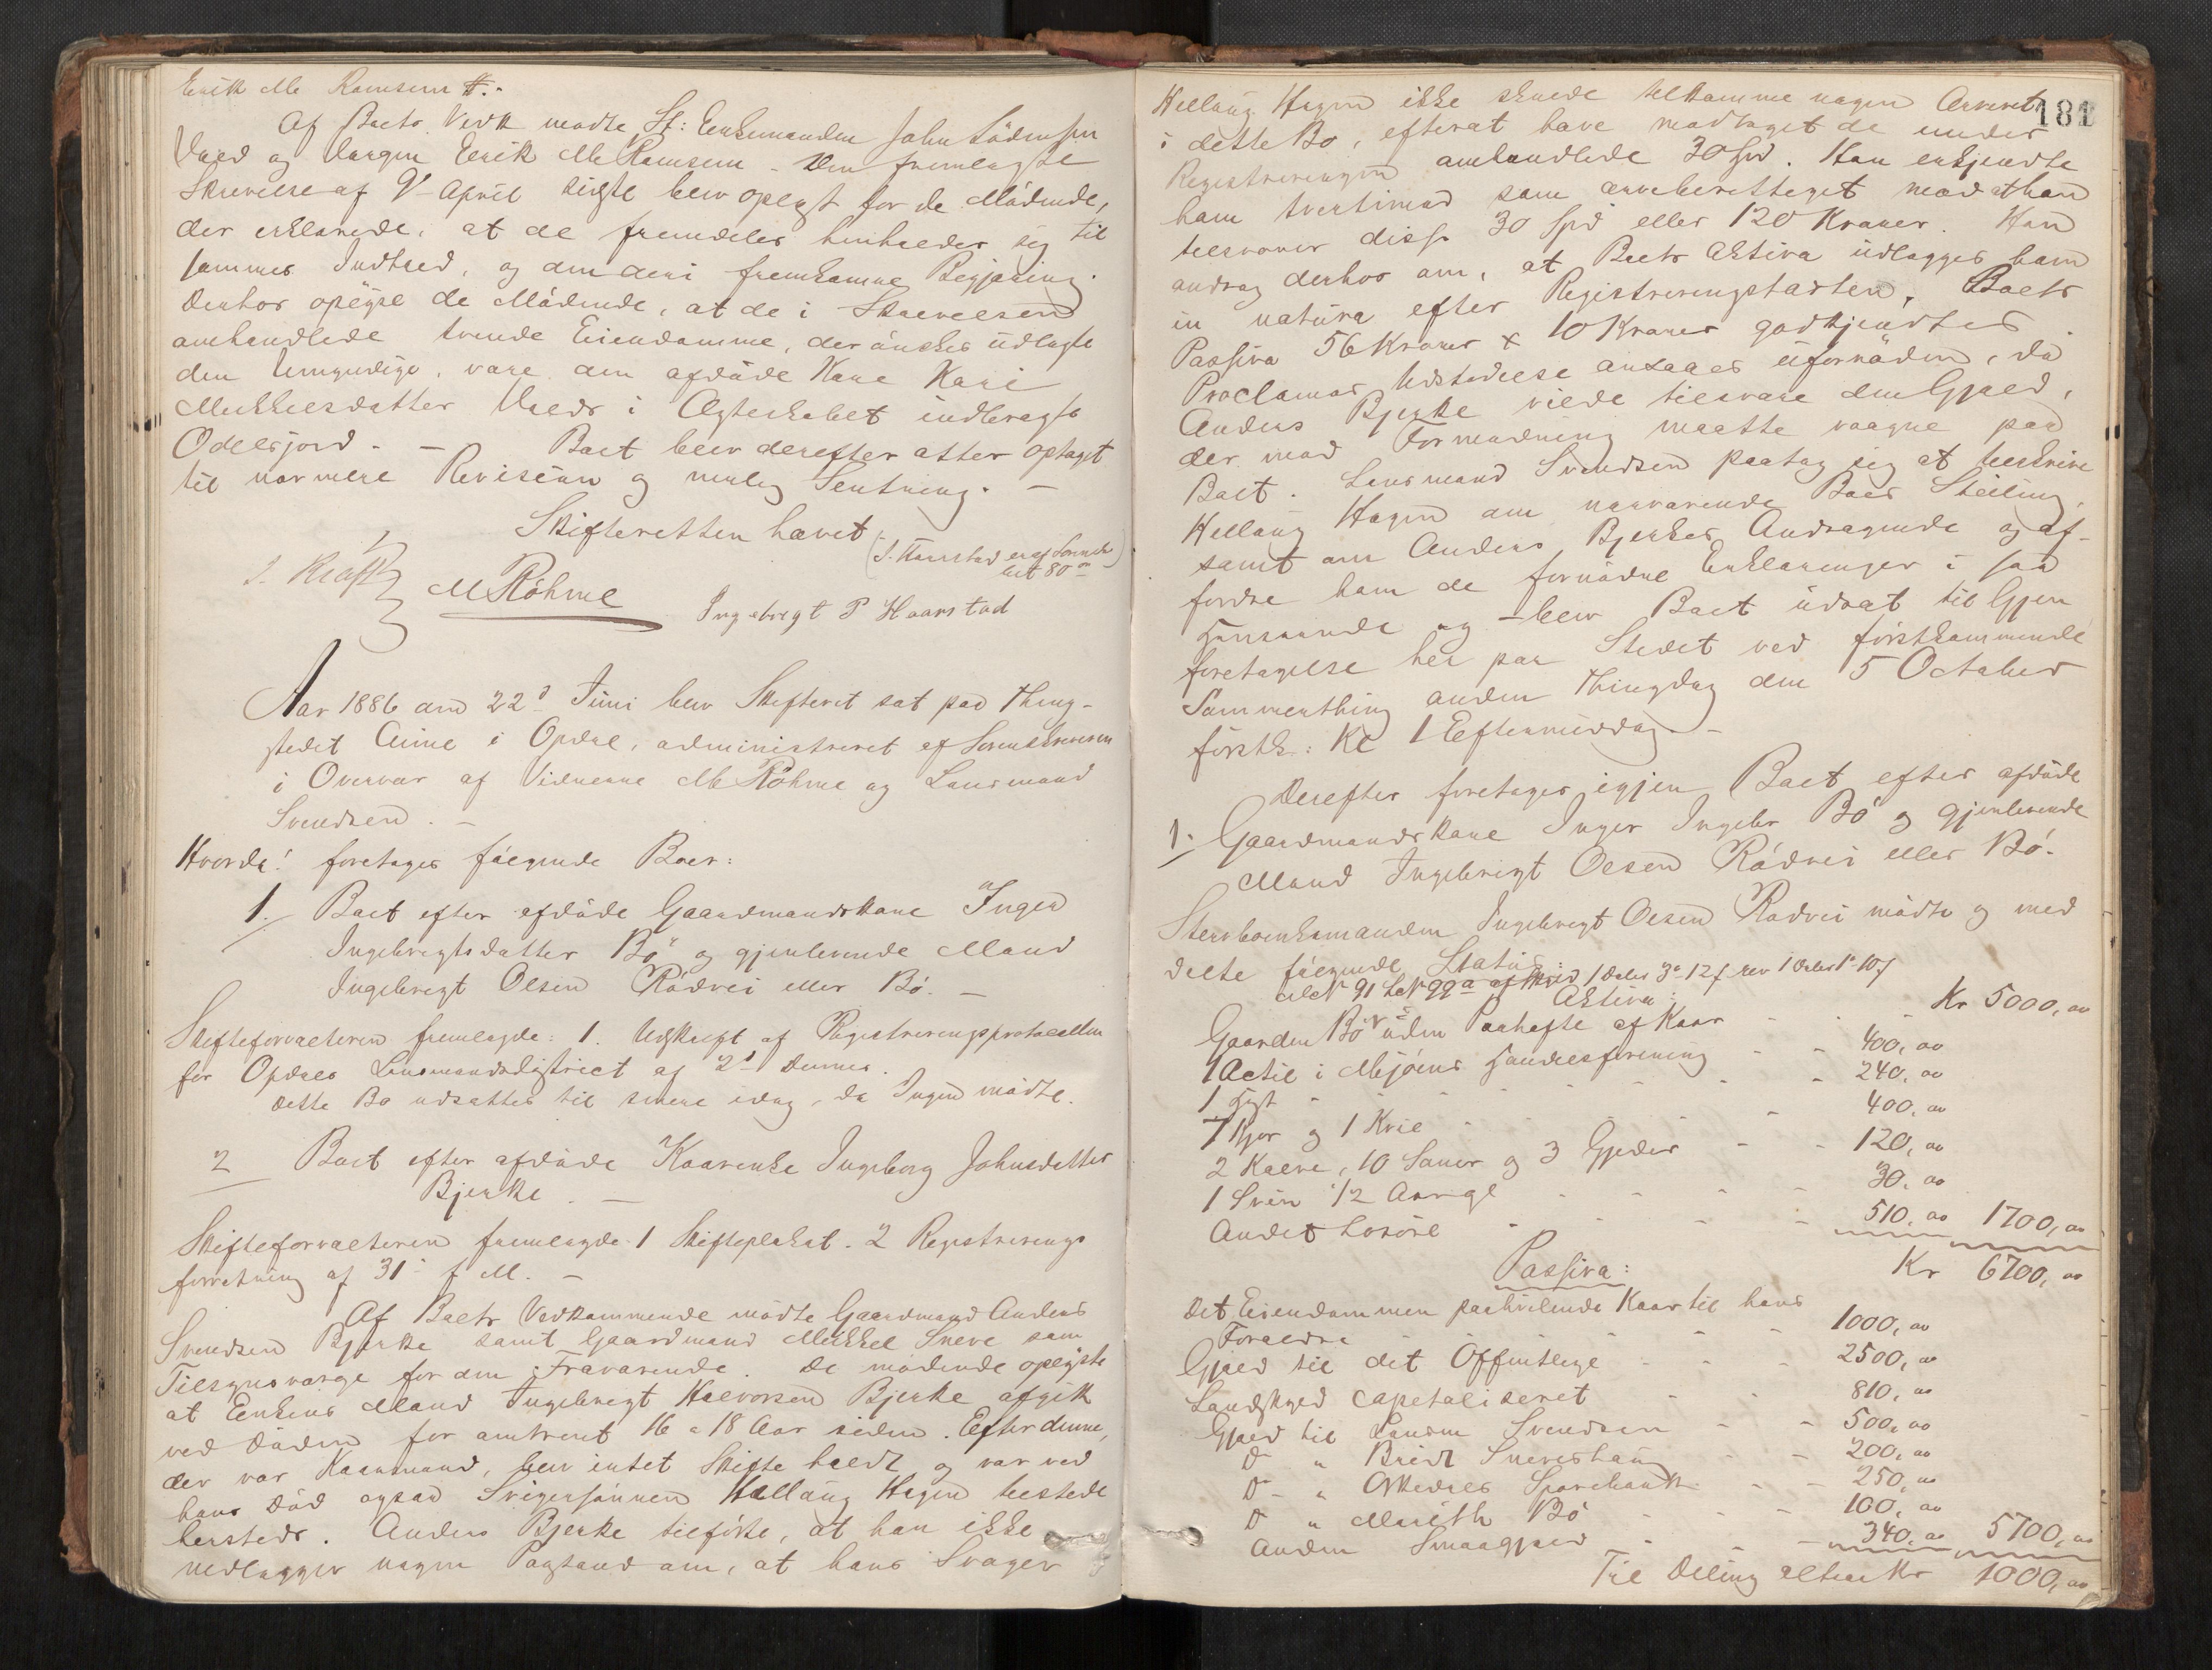 Erik M Ramsem #.-
Af Boets Vedk mødte St: Enkemanden John
Vaed og Vargen Erik M Ramsem - Den fremlagte
Skrivelse af 9 April sidstl blev oplæst for de Mødende,
der erklærede, at de fremdeles henholder sig til
sammes Indhold, og den deri fremkomne Begjæring.
Derhos oplyse de Mødende, at de i Skrivelsen
omhandlede tvende Eiendomme, der ønskes udlagte
den Umyndige, vare den afdøde Kone Kari
Mikkelsdatter Vaeds i Ægteskabet indbragte
Odelsjord. - Boet blev derefter atter optaget
til nærmere Revision og mulig Slutning. -
Skifteretten hævet
J. Kraft
M Røhme
Ingebrigt P Haarstad
Aar 1886 den 22d Juni blev Skifteret sat paa Thing-
stedet Aune i Opdal, administreret af Sorenskriveren
i Overvær af Vidnerne M Røhme og Lensmand
Svendsen. -
Hvorda! foretages følgende Boer:
1. Boet efter afdøde Gaardmandskone Inger
Ingebrigtsdatter Bø og gjenlevende Mand
Ingebrigt Olsen Rødvei eller Bø. -
Skifteforvalteren fremlagde: 1. Udskrift af Registreringsprotocollen
for Opdals Lensmandsdistrict af 2d Dennes.
Dette Bo udsattes til senere idag, da Ingen mødte.
2 Boet efter afdøde Kaarenke Ingeborg Johnsdatter
Bjerke. -
Skifteforvalteren fremlagde 1 Skifteplakat. 2 Registrerings
forretning af 31 f M. -
Af Boets Vedkommende mødte Gaardmand Anders
Svendsen Bjerke samt Gaardmand Mikkel Sneve som
Tilsynsværge for den Fraværende. De mødende oplyste
at Enkens Mand Ingebrigt Halvorsen Bjerke afgik
ved Døden for omtrent 16 a 18 Aar siden. Efter denne,
der var Kaarmand, blev intet Skifte holdt og var ved
hans Død ogsaa Svigersønnen Hellaug Hagen tilstede
hersteds. Anders Bjerke tilføiede, at han ikke
nedlægger nogen Paastand om, at hans Svoger
181
Hellaug Hagen ikke skulde tilkomme nogen Arveret
i dette Bo, efterat have modtaget de under
Registreringen omhandlede 30 Spd. Han erkjendte
ham tvertimod som arveberettiget mod at han
tilsvarer disse 30 Spd eller 120 Kroner. Han
androg derhos om, at Boets Aktiva udlægges ham
in natura efter Registreringstaxten. Boets
Passiva 56 Kroner + 10 Kroner godkjendtes.
Proclamas Udstedelse ansaaes ufornøden, da
Anders Bjerke vilde tilsvare den Gjæld,
der mod Formodning maatte vaagne paa
Boet. Lensmand Svendsen paatog sig at tilskrive
Hellaug Hagen om nærværende Boes Stilling,
samt om Anders Bjerkes Andragende og af-
fordre ham de fornødne Erklæringer i saa
Henseende og - blev Boet udsat til Gjen
foretagelse her paa Stedet ved førstkommende
Sommerthing anden Thingdag den 5 October
førstk: Kl 1 Eftermiddag. -
Derefter foretages igjen Boet efter afdøde
1. Gaardmandskone Inger Ingebr Bø og gjenlevende
Mand Ingebrigt Olsen Rødvei eller Bø.
Stervboenkemanden Ingebrigt Olsen Rødvei mødte og med
delte følgende Status:
Aktiva:
Gaarden Bø uden Paahefte af Kaar - - Kr 5000,00
1 Actie i Mjøens Handelsforening - - 400,00
1 Hest - - 240,00
7 Kjør og 1 Kvie - - 400,00
2 Kalve, 10 Sauer og 3 Gjeder - - 120,00
1 Svin 1/2 Aar gl - - 30,00
Andet Løsøre - - 510,00 1700,00
Kr 6700,00
Passiva:
Det Eiendommen paahvilende Kaar til hans
Forældre - - 1000,00
Gjæld til det Offentlige - - 2500,00
Landskyld capitaliseret - - 810,00
Gjæld til Lensm Svendsen - - 500,00
Do " Brødr Sneveshaug - - 200,00
Do " Opdals Sparebank - - 250,00
Do " Marith Bø - - 100,00
Anden Smaagjæld - - 340,00 5700,00
Til Deling altsaa Kr 1000,00